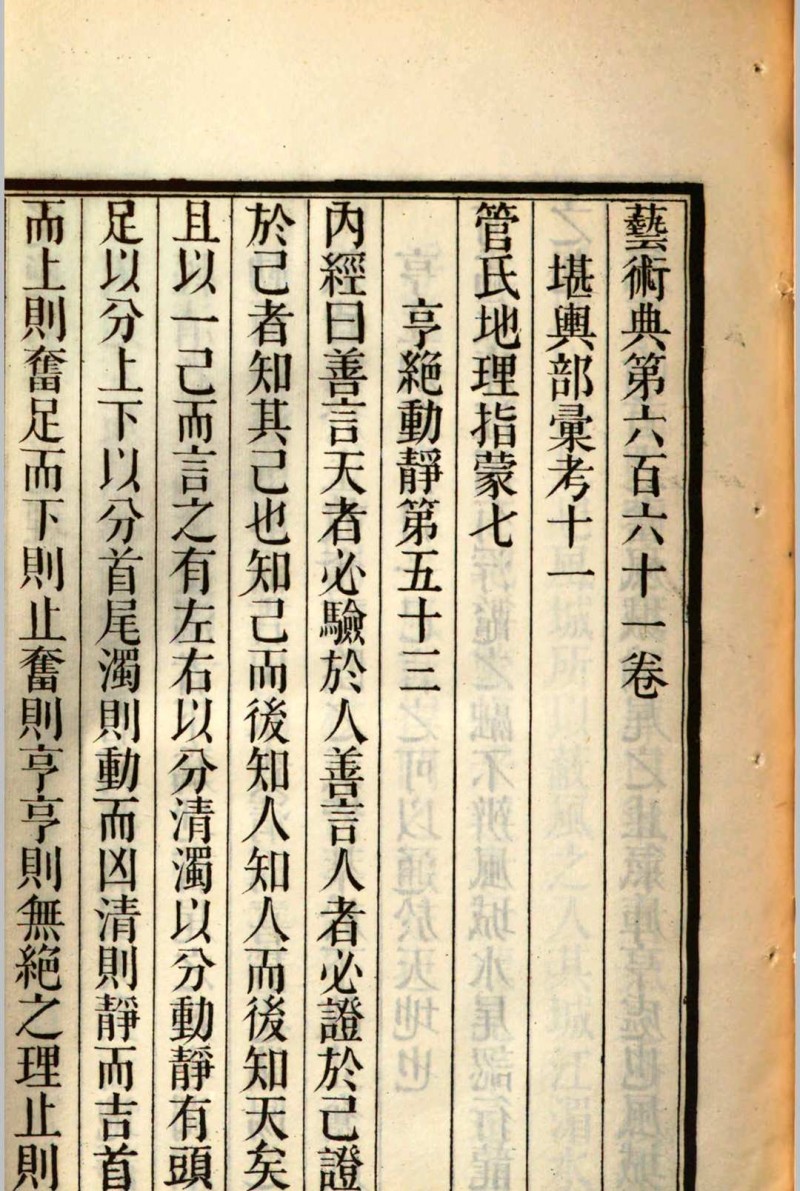 藝術典第六百六十一卷
堪輿部彙考十一
管氏地理指蒙七
亨絕動靜第五十三
內經曰善言天者必驗於人善言人者必證於己證
於己者知其己也知己而後知人知人而後知天矣
且以一己而言之有左右以分清濁以分動靜有頭
足以分上下以分首尾濁則動而凶清則靜而吉首
而上則奮足而下則止奮則亨亨則無絕之理止則